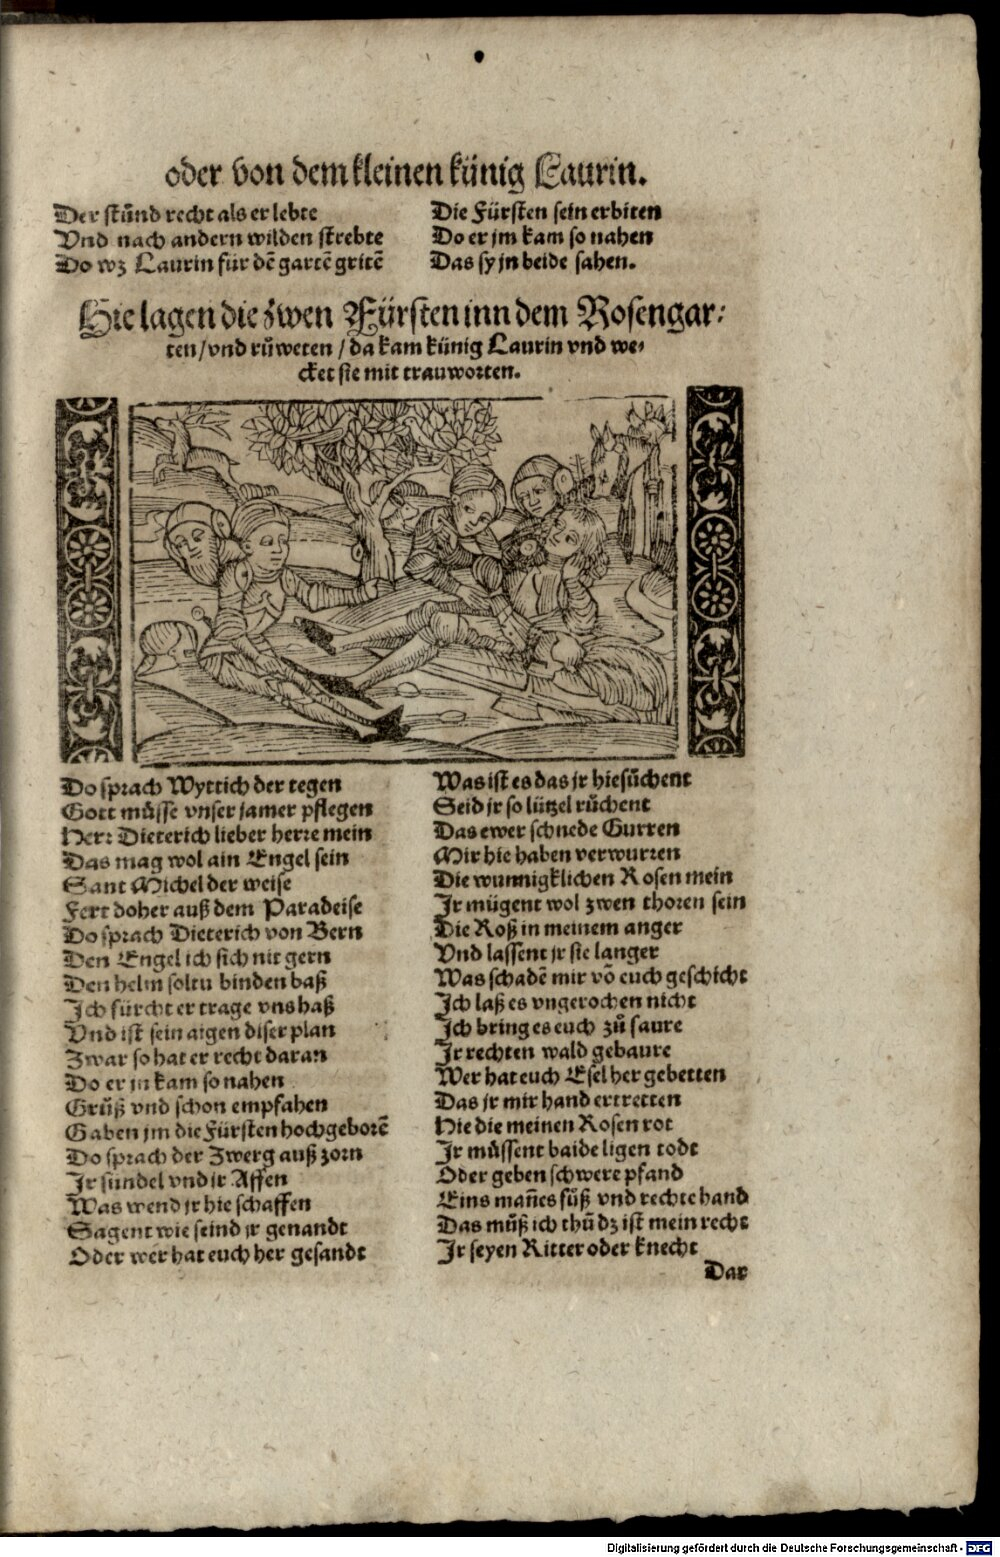 oder von dem kleinen künig Laurin.
Der stůnd recht als er lebte
Vnd nach andern wilden strebte
Do wz Laurin für dẽ gartẽ gritẽ
Die Fürsten sein erbiten
Do er jm kam so nahen
Das sy jn beide sahen.
Hie lagen die zwen Fürsten inn dem Rosengar⸗
ten / vnd růweten / da kam künig Laurin vnd we⸗
cket sie mit trauworten.
Do sprach Wyttich der tegen
Gott můsse vnser jamer pflegen
Herr Dieterich lieber herre mein
Das mag wol ain Engel sein
Sant Michel der weise
Fert doher auß dem Paradeise
Do sprach Dieterich von Bern
Den Engel ich sich nit gern
Den helm soltu binden baß
Ich fürcht er trage vns haß
Vnd ist sein aigen diser plan
Zwar so hat er recht daran
Do er jn kam so nahen
Grůß vnd schon empfahen
Gaben jm die Fürsten hochgeborẽ
Do sprach der Zwerg auß zorn
Ir sündel vnd jr Affen
Was wend jr hie schaffen
Sagent wie seind jr genandt
Oder wer hat euch her gesandt
Was ist es das jr hie sůchent
Seid jr so lützel růchent
Das ewer schnede Gurren
Mir hie haben verwurren
Die wunnigklichen Rosen mein
Ir mügent wol zwen thoren sein
Die Roß in meinem anger
Vnd lassent jr sie langer
Was schadẽ mir võ euch geschicht
Ich laß es vngerochen nicht
Ich bring es euch zů saure
Ir rechten wald gebaure
Wer hat euch Esel her gebetten
Das jr mir hand ertretten
Hie die meinen Rosen rot
Ir můssent baide ligen todt
Oder geben schwere pfand
Eins mañes fůß vnd rechte hand
Das můß ich thů dz ist mein recht
Ir seyen Ritter oder knecht
Dar
Digitalisierung gefördert durch die Deutsche Forschungsgemeinschaft - DFG